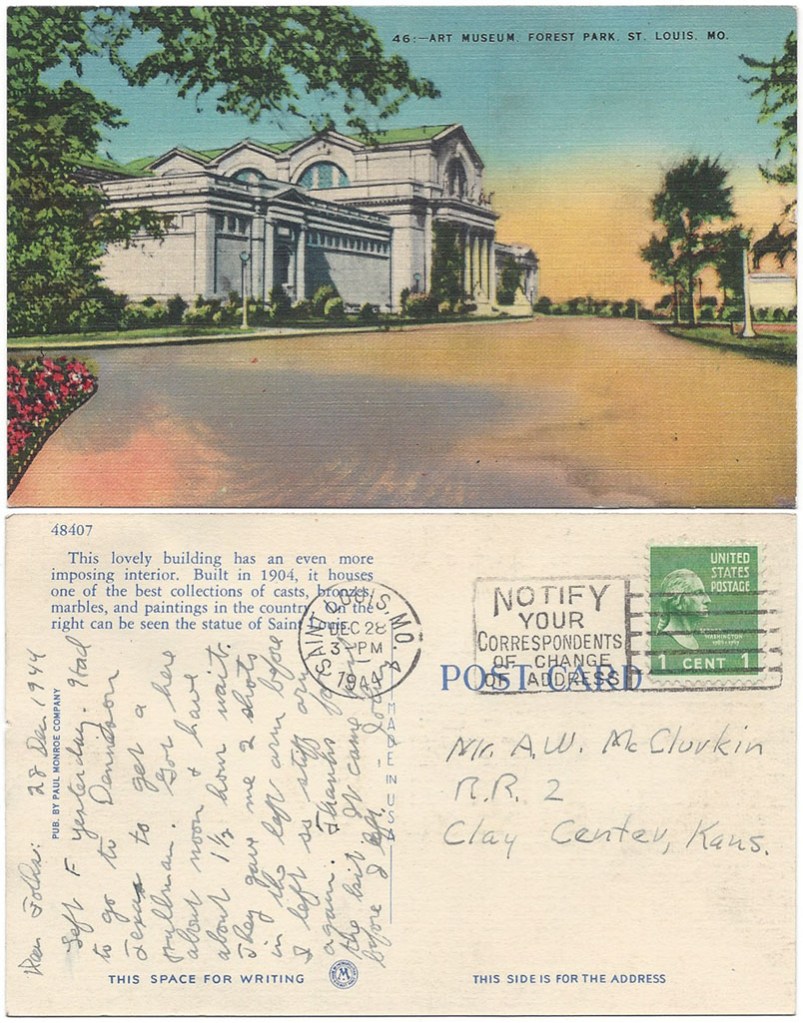 46:—ART MUSEUM, FOREST PARK, ST. LOUIS, MO.
48407
This lovely building has an even more
imposing interior. Built in 1904, it houses
one of the best collections of casts, bronzes,
marbles, and paintings in the country. On the
right can be seen the statue of Saint Louis.
SAINT LOUIS, MO. 4
DEC 28
3-PM
1944
NOTIFY
YOUR
CORRESPONDENTS
OF CHANGE
OF ADDRESS
UNITED
STATES
POSTAGE
WASHINGTON
1 CENT 1
POST CARD
PUB. BY PAUL MONROE COMPANY
MADE IN USA
28 Dec 1944
Dear Folks:
Left F yesterday. Had
to go to Dennison
Texas to get a
pullman. Got here
about noon & have
about 1½ hour wait.
They gave me 2 shots
in the left arm before
I left so stiff arm
again. Thanks for
the kit. It came
before I left.
Mr. A.W. McClurkin
R.R. 2
Clay Center, Kans.
THIS SPACE FOR WRITING
M
THIS SIDE IS FOR THE ADDRESS